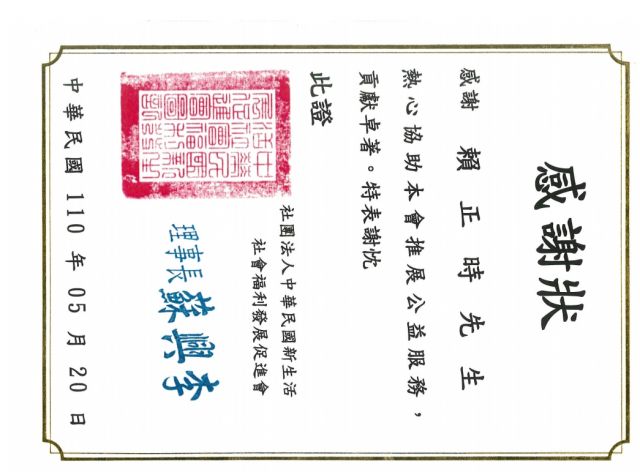 感謝狀
感謝 賴正時先生
熱心協助本會推展公益服務，
貢獻卓著。特表謝忱
此證
社團法人中華民國新生活
社會福利發展促進會
理事長 蘇
中華民國 110 年 05 月 20 日